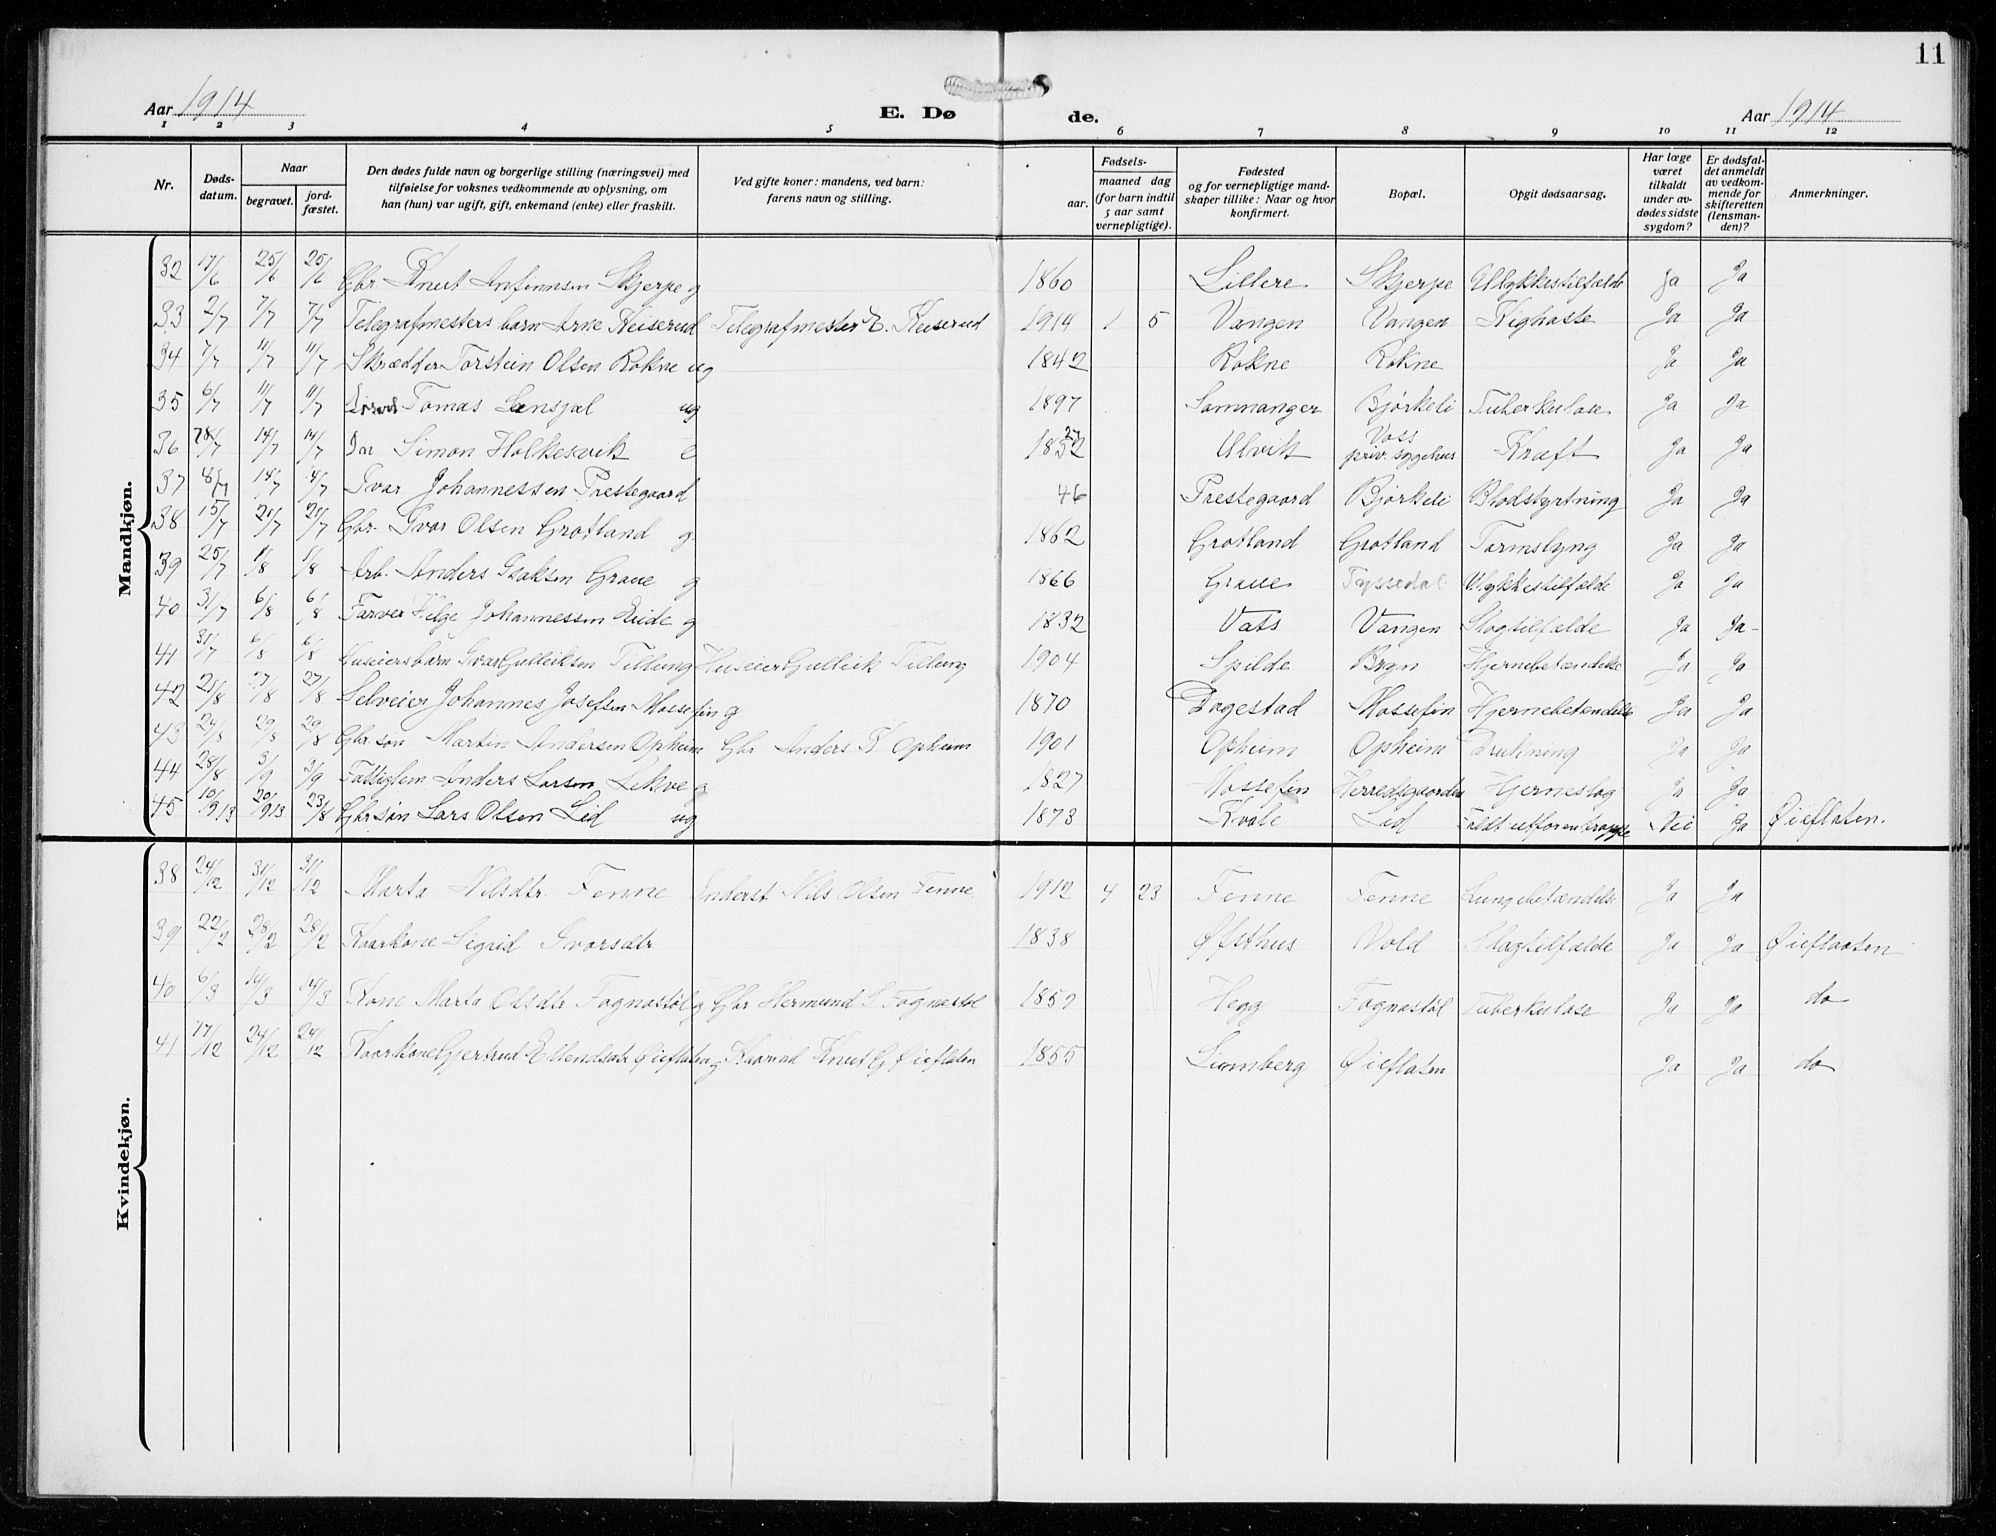 11
Aar 1914 E. Dø de. Aar 1914
1 2 3 4 5 6 7 8 9 10 11 12
Nr. Døds-datum. Naar begravet. jord-fæstet. Den dødes fulde navn og borgerlige stilling (næringsvei) med tilføielse for voksnes vedkommende av oplysning, om han (hun) var ugift, gift, enkemand (enke) eller fraskilt. Ved gifte koner: mandens, ved barn: farens navn og stilling. Fødsels- aar. maaned dag (for barn indtil 5 aar samt vernepligtige). Fødested og for vernepligtige mandskaper tillike: Naar og hvor konfirmert. Bopæl. Opgit dødsaarsag. Har læge været tilkaldt under avdødes sidste sygdom? Er dødsfaldet anmeldt av vedkommende for skifteretten (lensmanden)? Anmerkninger.
Mandkjøn.
32 17/6 25/6 25/6 Gbr. Knut Anfinnsen Skjerpe g 1860 Lillere Skjerpe Ulykkestilfælde Ja Ja
33 2/7 7/7 7/7 Telegrafmesters barn Arne Keiserud Telegrafmester E. Keiserud 1914 1 5 Vangen Vangen Kighoste Ja Ja
34 7/7 11/7 11/7 Skrædder Torstein Olsen Rokne ug 1842 Rokne Rokne Ja Ja
35 6/7 11/7 11/7 Tomas ug 1897 Samnanger Bjørkeli Tuberkulose Ja Ja
36 14/7 14/7 Simon Holkesvik e Ulvik Voss priv. sygehus Kræft Ja Ja
37 8/7 14/7 14/7 Ivar Johannessen Prestegaard 46 Prestegaard Bjørkeli Blodstyrtning Ja Ja
38 15/7 21/7 21/7 Gbr. Ivar Olsen Grotland g. 1862 Grotland Grotland Tarmslyng Ja Ja
39 25/7 1/8 1/8 Arb. Anders Isaksen Graue g 1866 Graue Tyssedal Ulykkestilfælde Ja Ja
40 31/7 6/8 6/8 Farver Helge Johannessen Eide g 1832 Vats Vangen Slagtilfælde Ja Ja
41 31/7 6/8 6/8 Huseiers barn Ivar Gulleiksen Tillung Huseier Gulleik Tillung 1904 Spilde Bygn Hjernebetændelse Ja Ja
42 21/8 27/8 27/8 Selveier Johannes Josefsen Mossefin g 1870 Dagestad Mossefin Hjernebetændelse Ja Ja
43 24/8 29/8 29/8 Gbr. søn Martin Andersen Opheim Gbr Anders K Opheim 1901 Opheim Opheim Drukning Ja Ja
44 28/8 3/9 3/9 Fattiglem Anders Larsen Lekve g 1827 Mossefin Herredsgaarden Hjerneslag Ja Ja
45 10/9 13 20/9 13 23/8 Gbr søn Lars Olsen Lid ug 1873 Kvale Lid Faldt utfor en trappe Nei Ja Øieflaten.
Kvindekjøn.
38 24/12 31/12 31/12 Marta Nilsdtr. Fenne Inderst Nils Olsen Fenne 1912 4 23 Fenne Fenne Lungebetændelse Ja Ja
39 22/2 28/2 28/2 Kaarkone Sigrid Ivarsdtr 1838 Øfsthus Vold Slagtilfælde Ja Ja Øieflaaten
40 6/3 14/3 14/3 Kone Marta Olsdtr Fognastøl g Gbr Hermund S Fognastøl 1859 Hegg Fognastøl Tuberkulose Ja Ja do
41 17/12 24/12 24/12 Kaarkone Gjertrud Ellendsdtr Øieflaten g Kaarmd Knut G. Øieflaten 1855 Øieflaten Ja Ja do